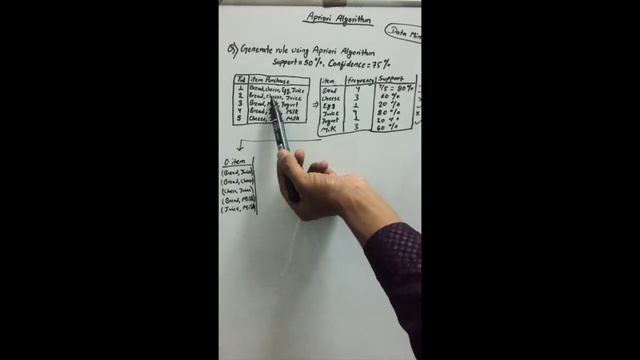 Apriori Algorithm
Data Min
Q) Generate rule using Apriori Algorithm
Support = 50%, Confidence = 75%
Tid item Purchase
1 Bread, cheese, Egg, Juice
2 Bread, cheese, Juice
3 Bread, Yogurt
4 Bread, Milk
5 Cheese, Milk
item frequency Support
Bread 4 4/5 = 80%
Cheese 3 60%
Egg 1 20%
Juice 4 80%
Yogurt 1 20%
Milk 3 60%
item
(Bread, Juice)
(Bread, Cheese)
(Cheese, Juice)
(Bread, Milk)
(Juice, Milk)